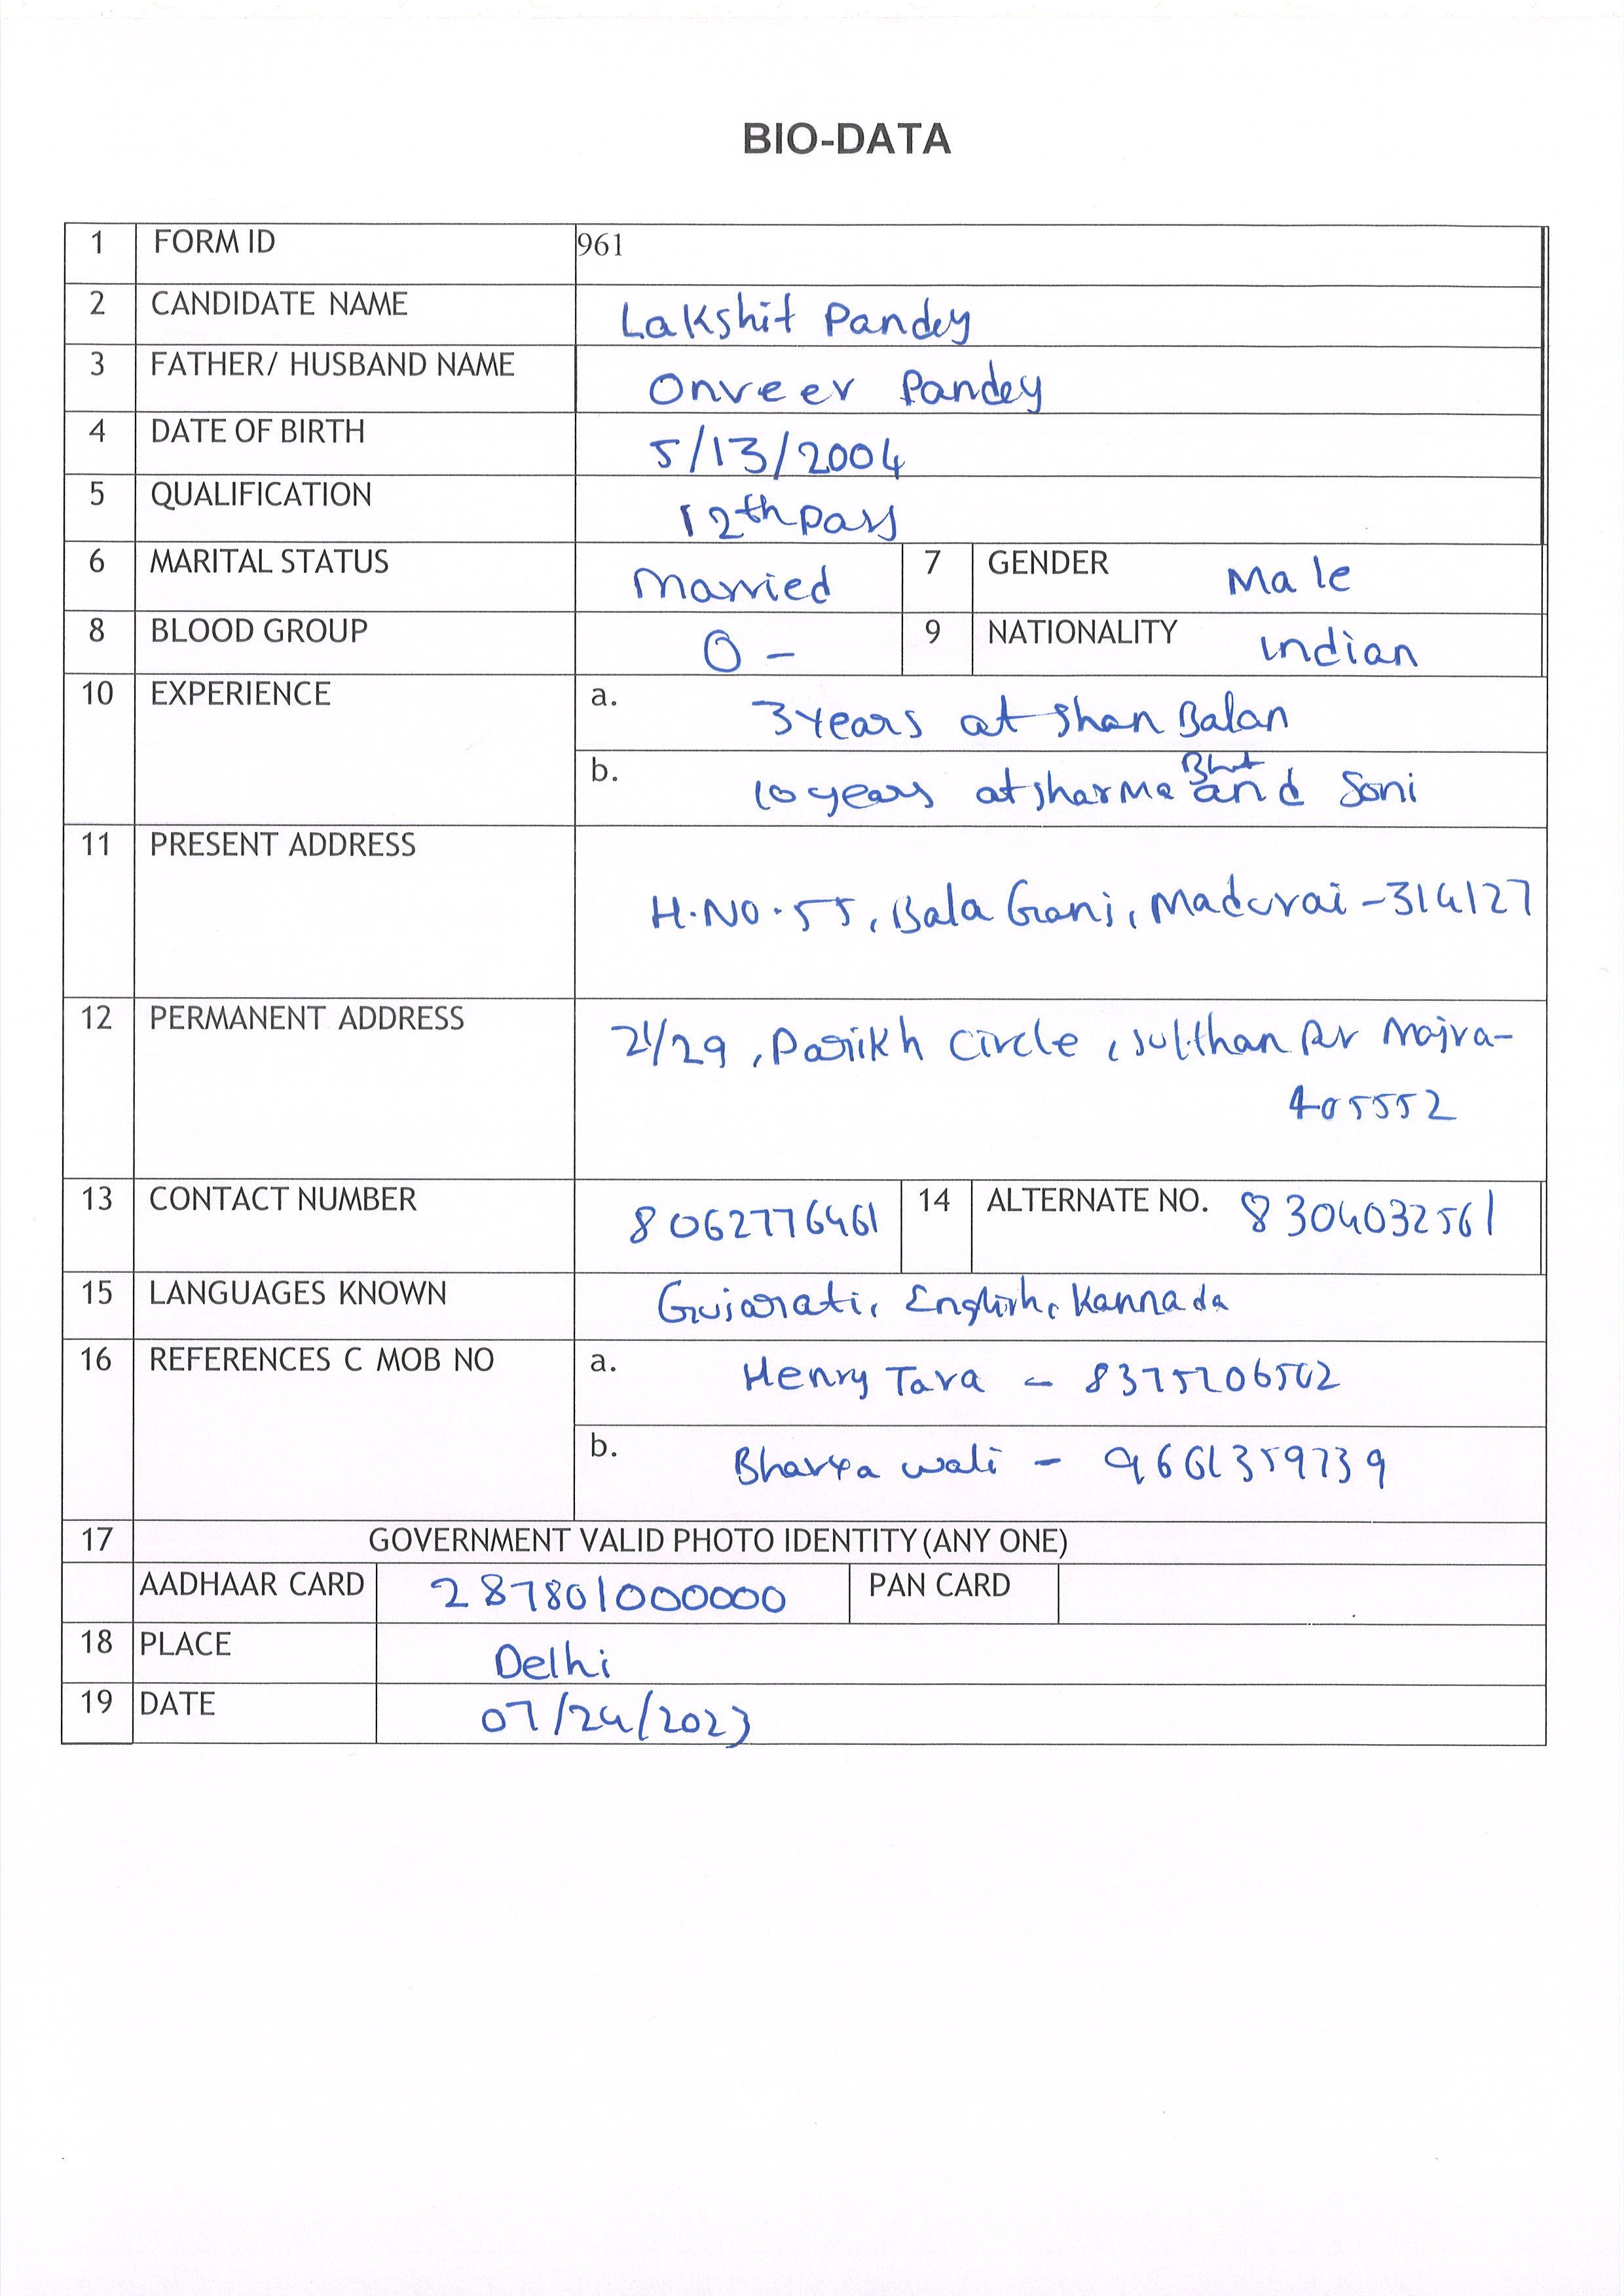 BIO-DATA
1 FORM ID 961
2 CANDIDATE NAME Lakshit Pandey
3 FATHER/ HUSBAND NAME Onveer Pandey
4 DATE OF BIRTH 5/13/2004
5 QUALIFICATION 12th pass
6 MARITAL STATUS Married 7 GENDER Male
8 BLOOD GROUP O - 9 NATIONALITY Indian
10 EXPERIENCE a. 3 years at Shan Balan
b. 10 years at Sharma Bhat and Soni
11 PRESENT ADDRESS
H.NO. 55, Bala Ganj, Madurai - 314127
12 PERMANENT ADDRESS 21/29, Parikh Circle, Sulthan Majra-
405552
13 CONTACT NUMBER 8062776461 14 ALTERNATE NO. 8304032561
15 LANGUAGES KNOWN Gujarati, English, Kannada
16 REFERENCES C MOB NO a. Henry Tara -
b. wali -
17 GOVERNMENT VALID PHOTO IDENTITY (ANY ONE)
AADHAAR CARD 287801000000 PAN CARD
18 PLACE Delhi
19 DATE 07/24/2023